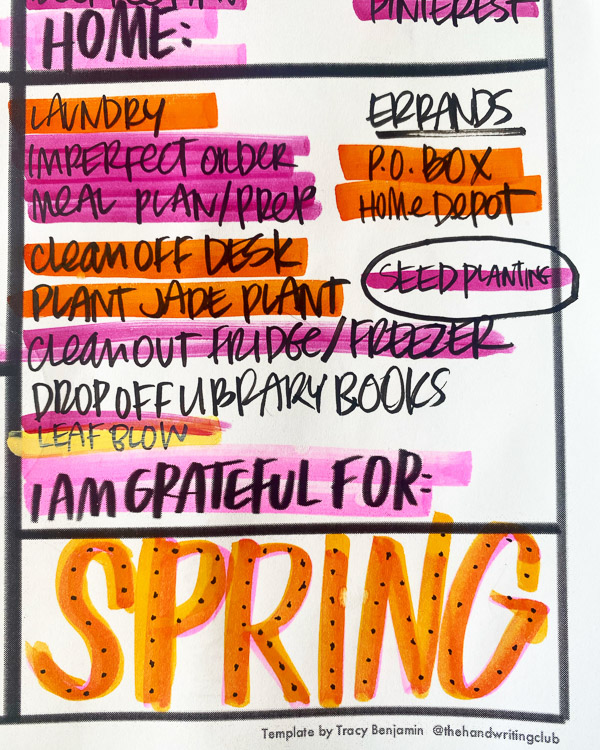 PINTEREST
HOME:
LAUNDRY
IMPERFECT ORDER
MEAL PLAN/PREP
CLEAN OFF DESK
PLANT JADE PLANT
CLEAN OUT FRIDGE/FREEZER
DROP OFF LIBRARY BOOKS
LEAF BLOW
ERRANDS
P.O. BOX
HOME DEPOT
SEED PLANTING
I AM GRATEFUL FOR:
SPRING
Template by Tracy Benjamin @thehandwritingclub